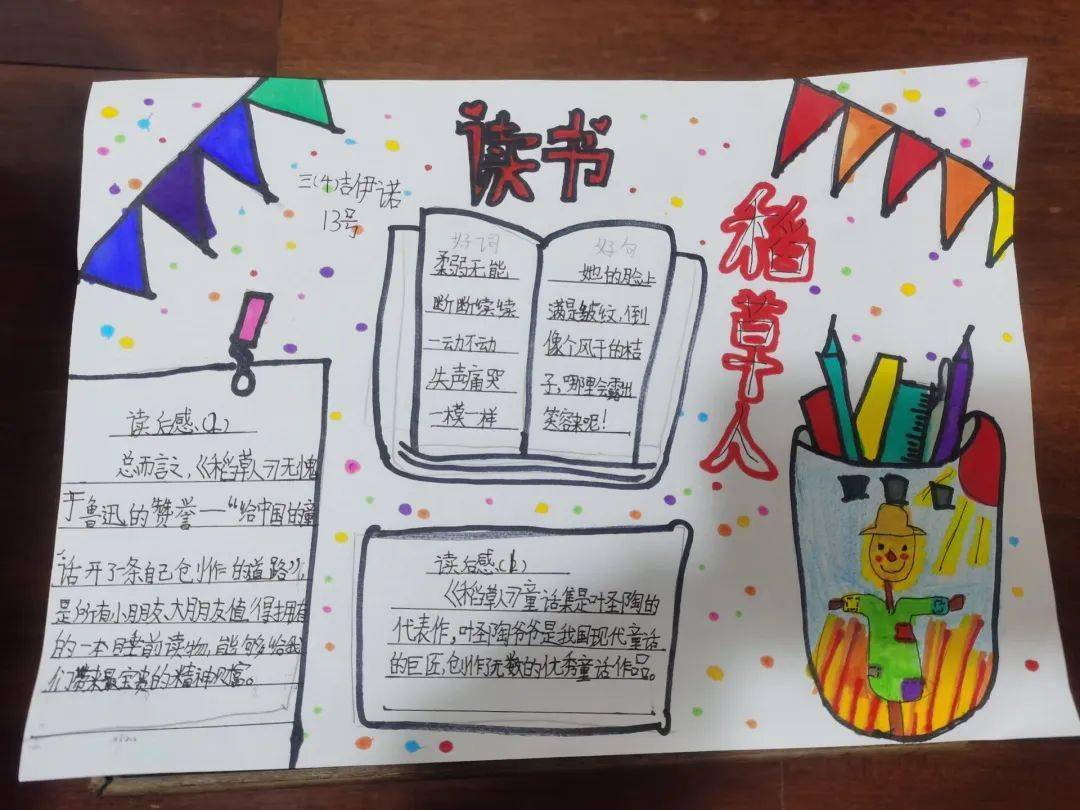 读书
三(4)吉伊诺
13号
稻草人
好词
柔弱无能
断断续续
一动不动
失声痛哭
一模一样
好句
她的脸上
满是皱纹,倒
像个风干的桔
子,哪里会露出
笑容来呢!
读后感(1)
《稻草人》童话集是叶圣陶的
代表作,叶圣陶爷爷是我国现代童话
的巨匠,创作无数的优秀童话作品。
读后感(2)
总而言之,《稻草人》无愧
于鲁迅的赞誉一“给中国的童
话开了一条自己创作的道路”,
是所有小朋友、大朋友值得拥有
的一本睡前读物,能够给我
们带来最宝贵的精神财富。